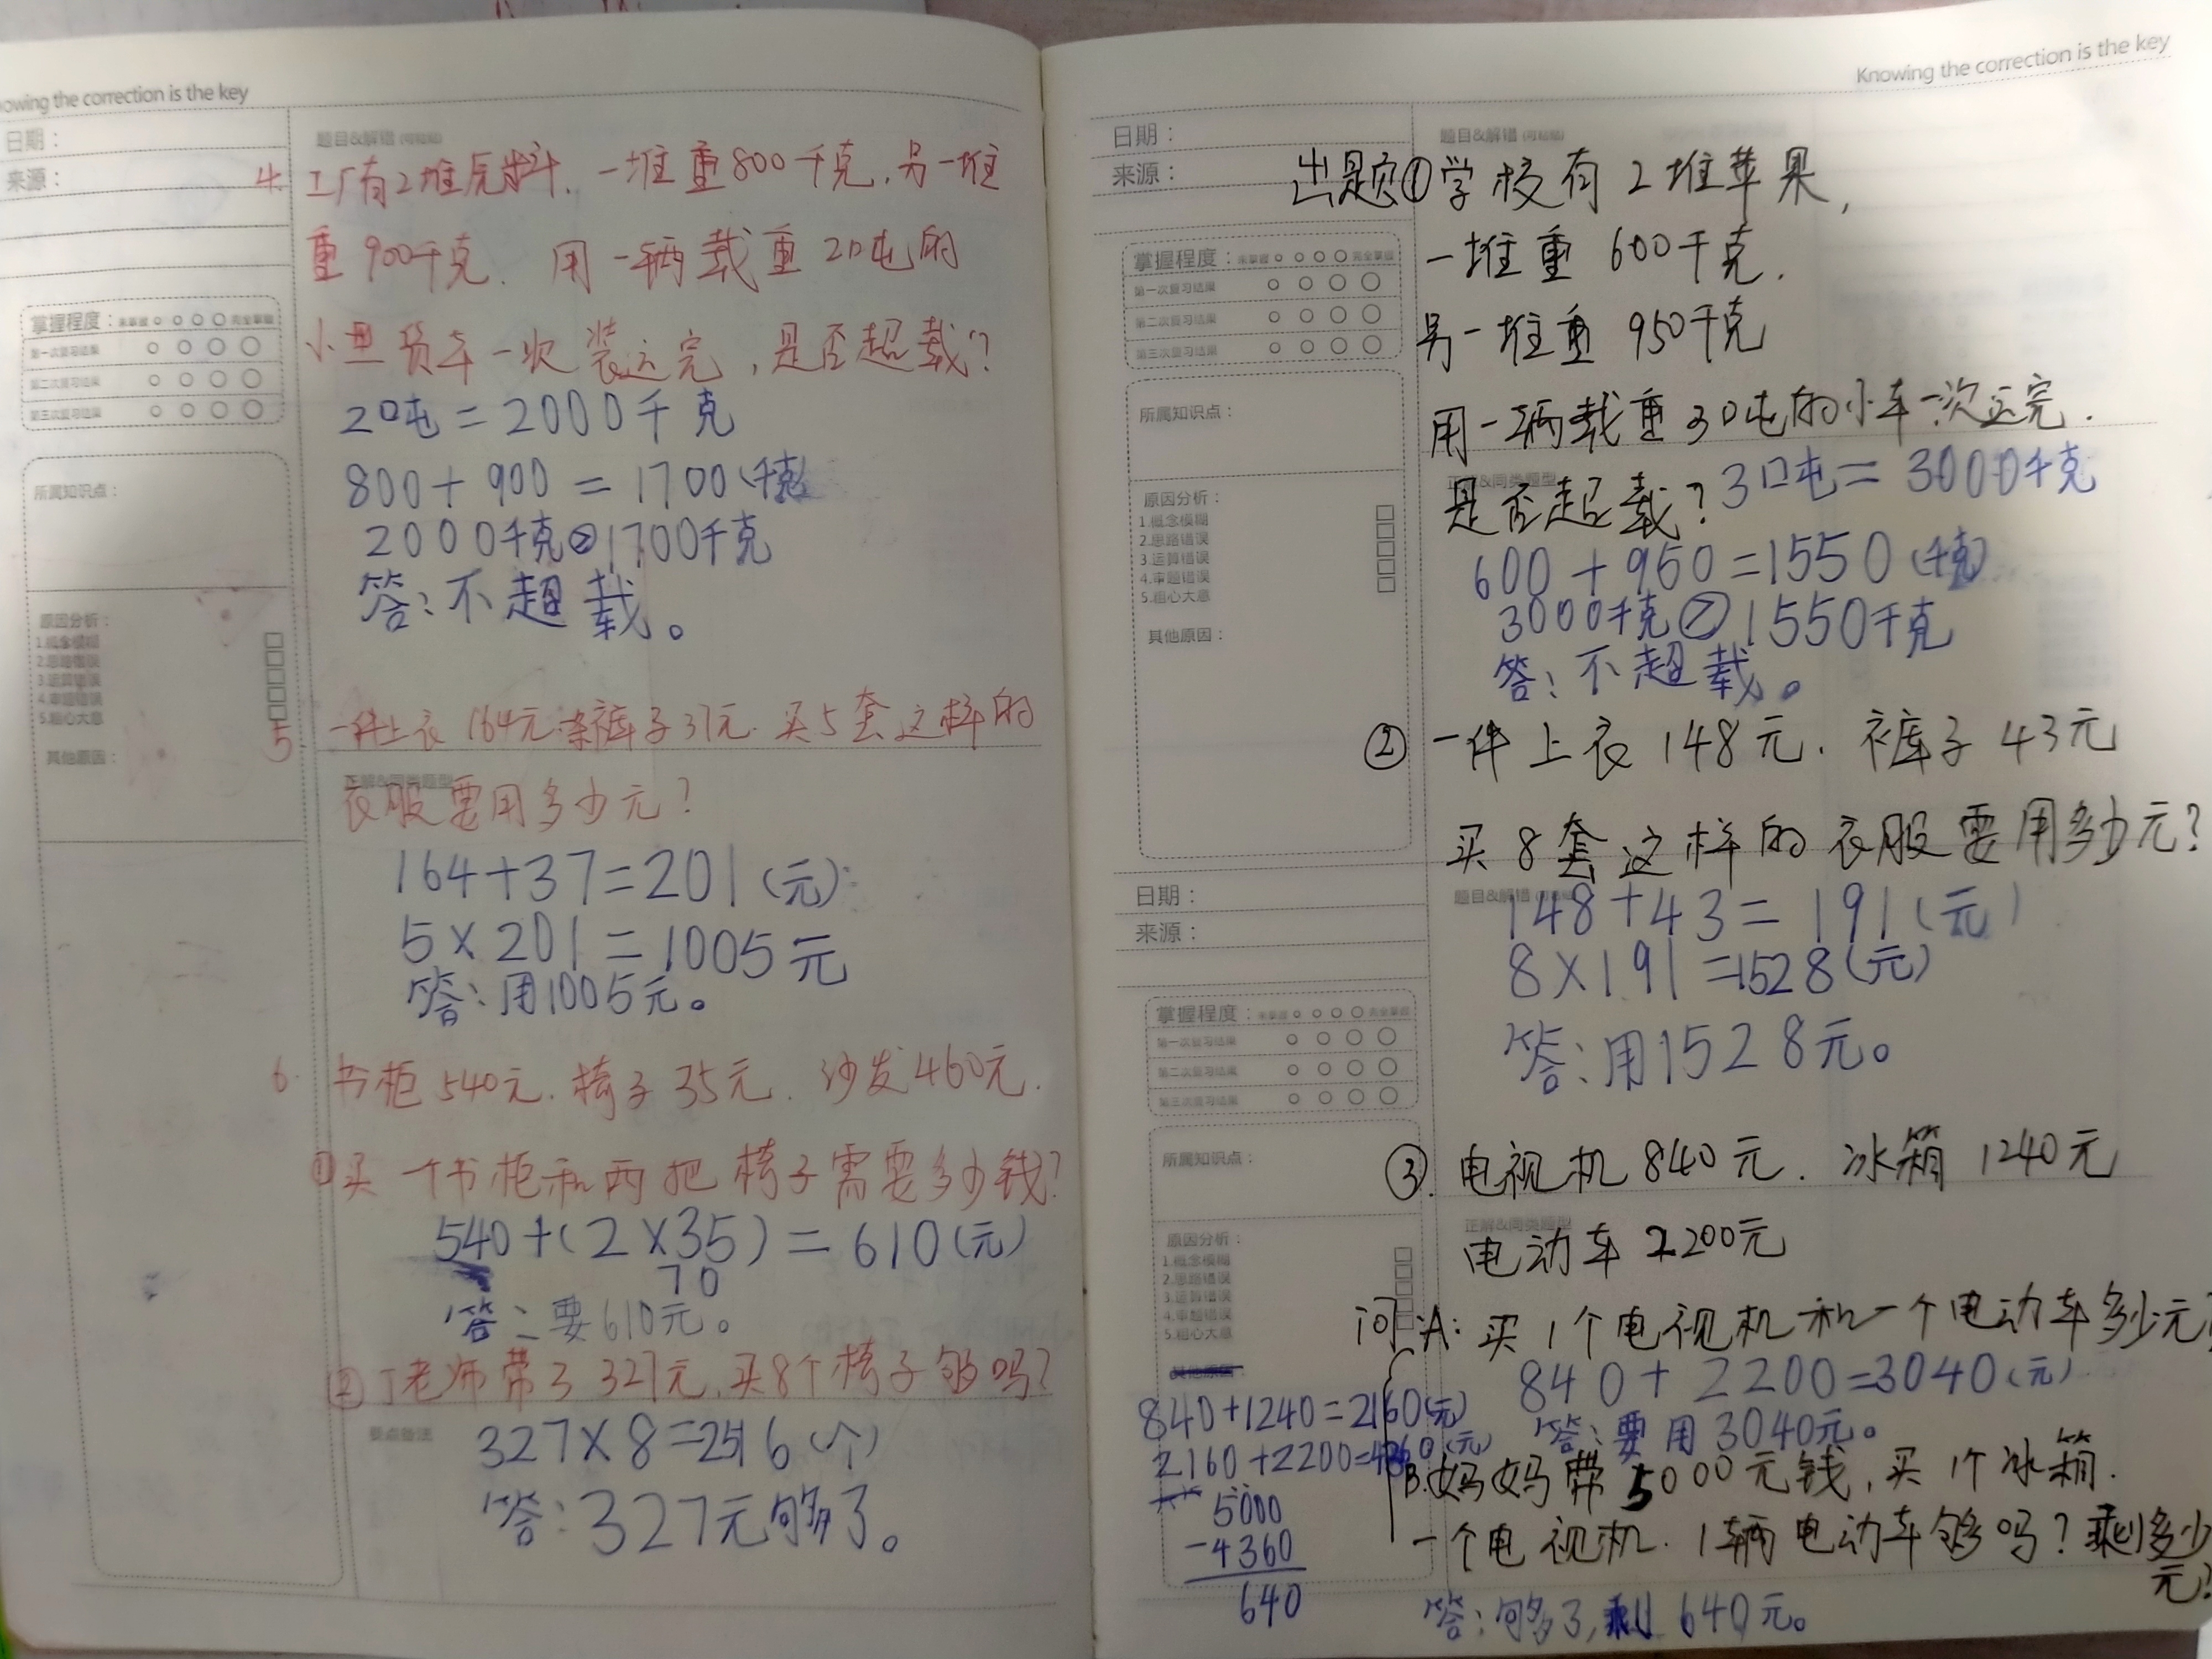 owing the correction is the key
日期：
来源：
题目&解错
4. 工厂有2堆原料、一堆重800千克,另一堆
重900千克. 用一辆载重2吨的
小型货车一次装运完,是否超载?
掌握程度：
第一次复习结果
第二次复习结果
第三次复习结果
所属知识点：
2吨=2000千克
800+900=1700(千克)
2000千克>1700千克
答:不超载。
原因分析：
1.概念模糊
2.思路错误
3.运算错误
4.审题错误
5.粗心大意
其他原因：
5 一件上衣164元.条裤子37元.买5套这样的
正解&同类题型
衣服要用多少元?
164+37=201(元)
5×201=1005元
答:用1005元。
6. 书柜540元.椅子35元.沙发460元.
①买一个书柜和两把椅子需要多少钱?
540+(2×35)=610(元)
70
答:要610元。
②丁老师带了327元,买8个椅子够吗?
要点备注
327×8=2516(个)
答:327元够了。
Knowing the correction is the key
日期：
来源：
题目&解错
出题①学校有2堆苹果,
一堆重600千克.
另一堆重950千克
用一辆载重3吨的小车一次运完.
正解&同类题型
是否超载? 3吨=3000千克
600+950=1550(千克)
3000千克>1550千克
答:不超载。
掌握程度：
第一次复习结果
第二次复习结果
第三次复习结果
所属知识点：
原因分析：
1.概念模糊
2.思路错误
3.运算错误
4.审题错误
5.粗心大意
其他原因：
② 一件上衣148元.裤子43元
买8套这样的衣服要用多少元?
日期：
来源：
题目&解错
148+43=191(元)
8×191=1528(元)
答:用1528元。
掌握程度：
第一次复习结果
第二次复习结果
第三次复习结果
所属知识点：
③.电视机840元.冰箱1240元
正解&同类题型
电动车2200元
原因分析：
1.概念模糊
2.思路错误
3.运算错误
4.审题错误
5.粗心大意
问:A:买1个电视机和一个电动车多少元?
840+2200=3040(元)
答:要用3040元。
840+1240=2160(元)
2160+2200=4360(元)
5000
-4360
640
B.妈妈带5000元钱,买1个冰箱.
一个电视机.1辆电动车够吗?剩多少
元?
答:够了,剩640元。